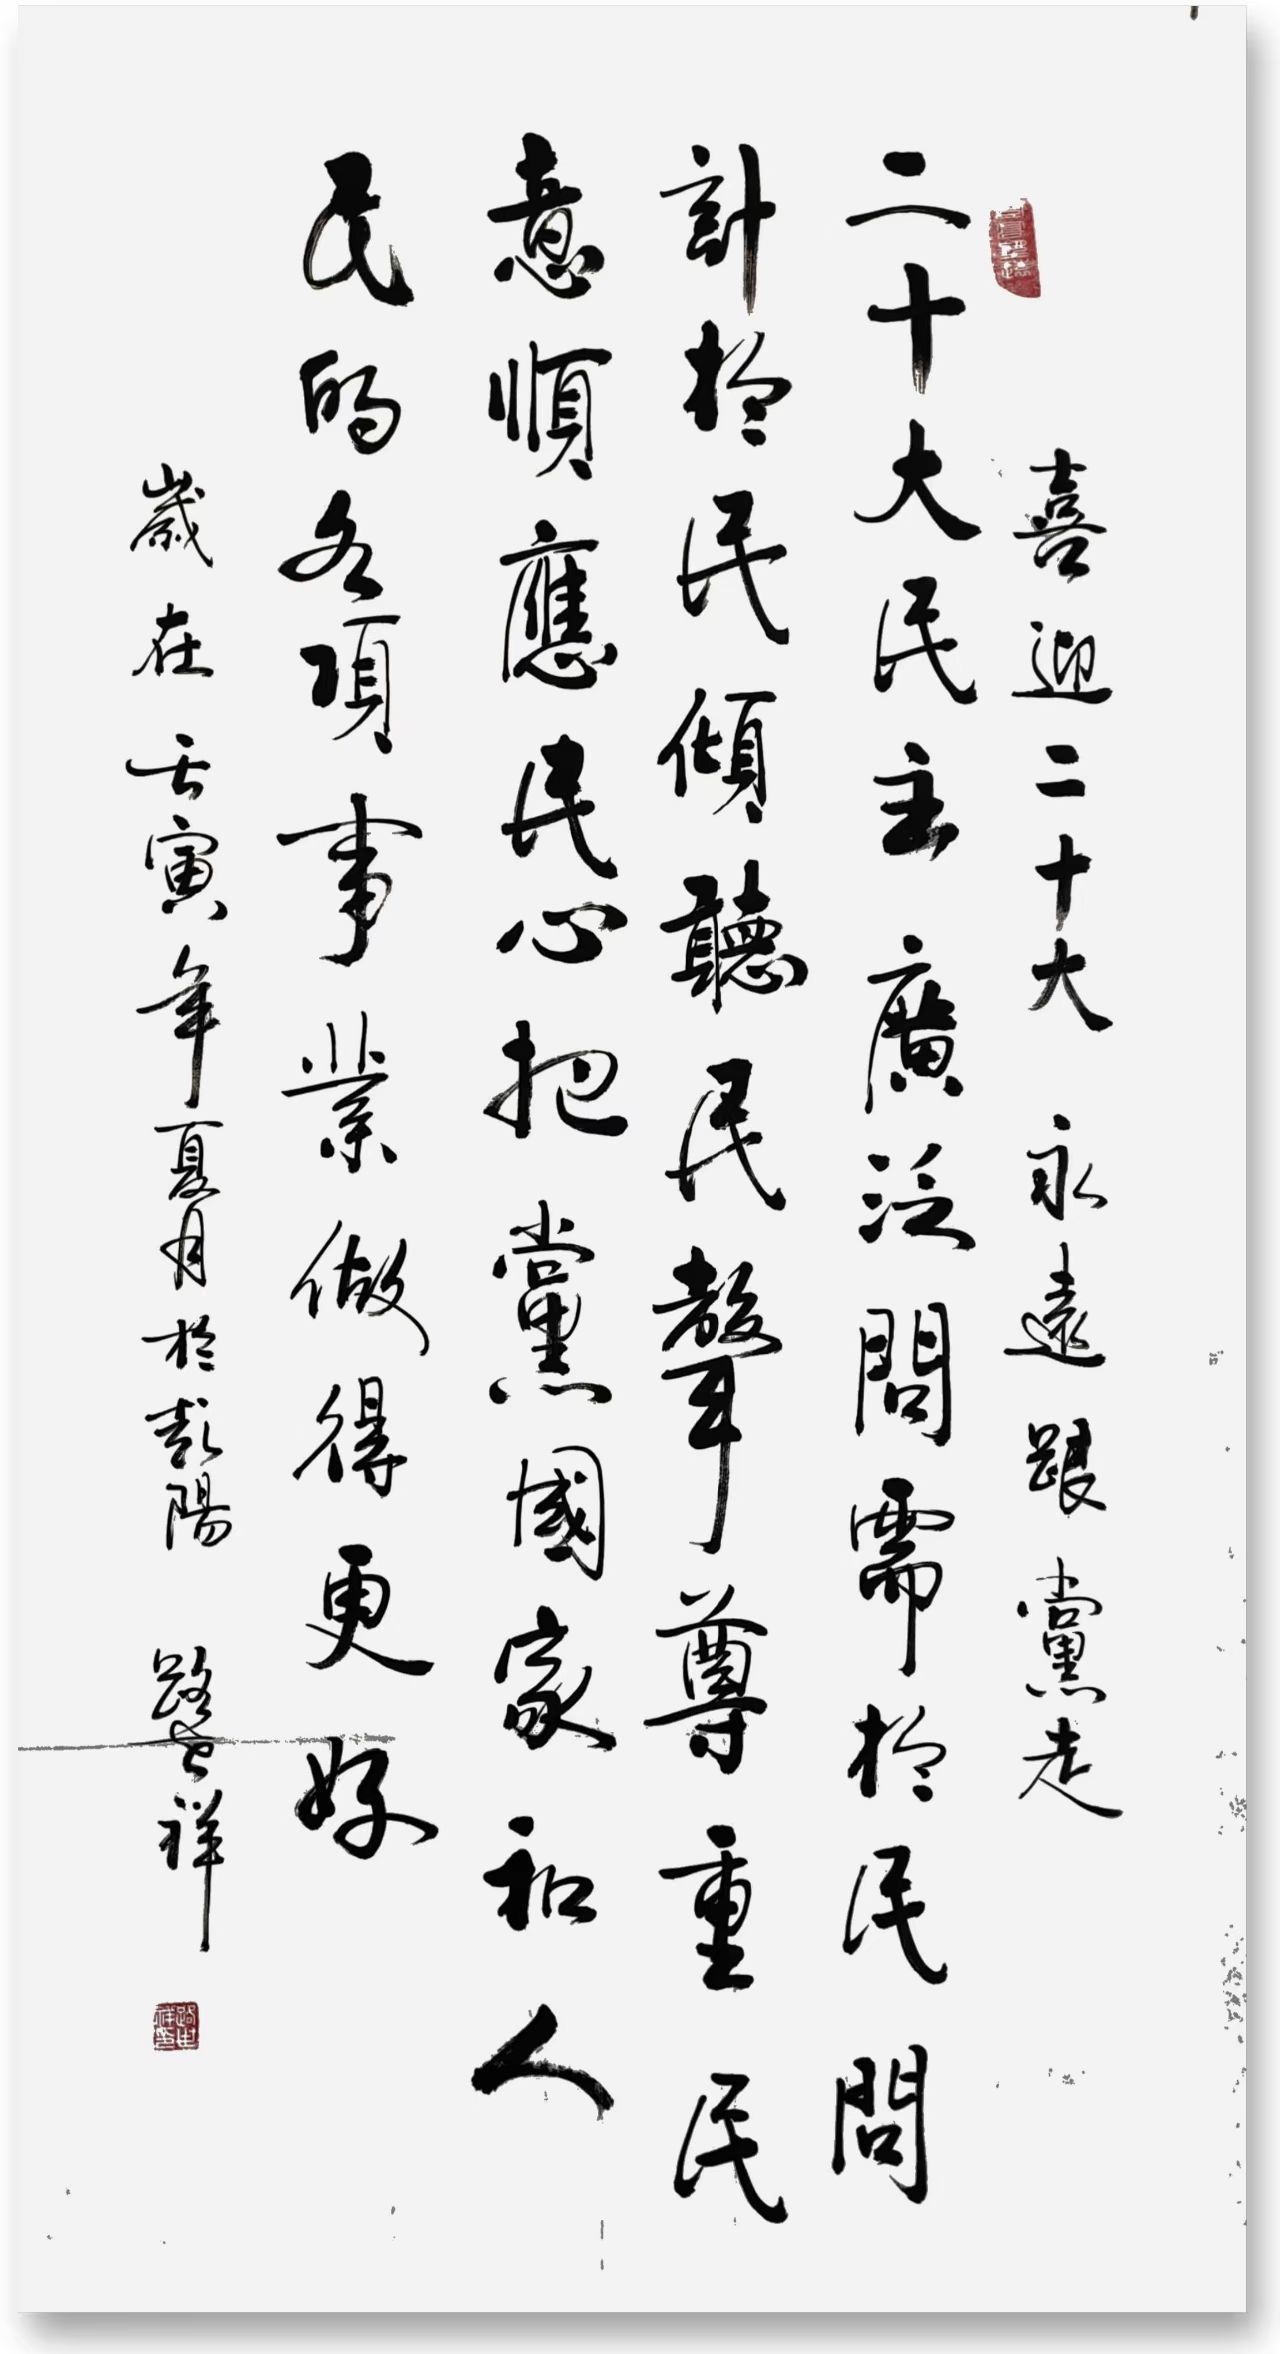 喜迎二十大 永遠跟黨走
二十大民主廣泛問需於民問
計於民傾聽民聲尊重民
意順應民心把黨國家和人
民的各項事業做得更好
歲在壬寅年夏月於彭陽 路世祥